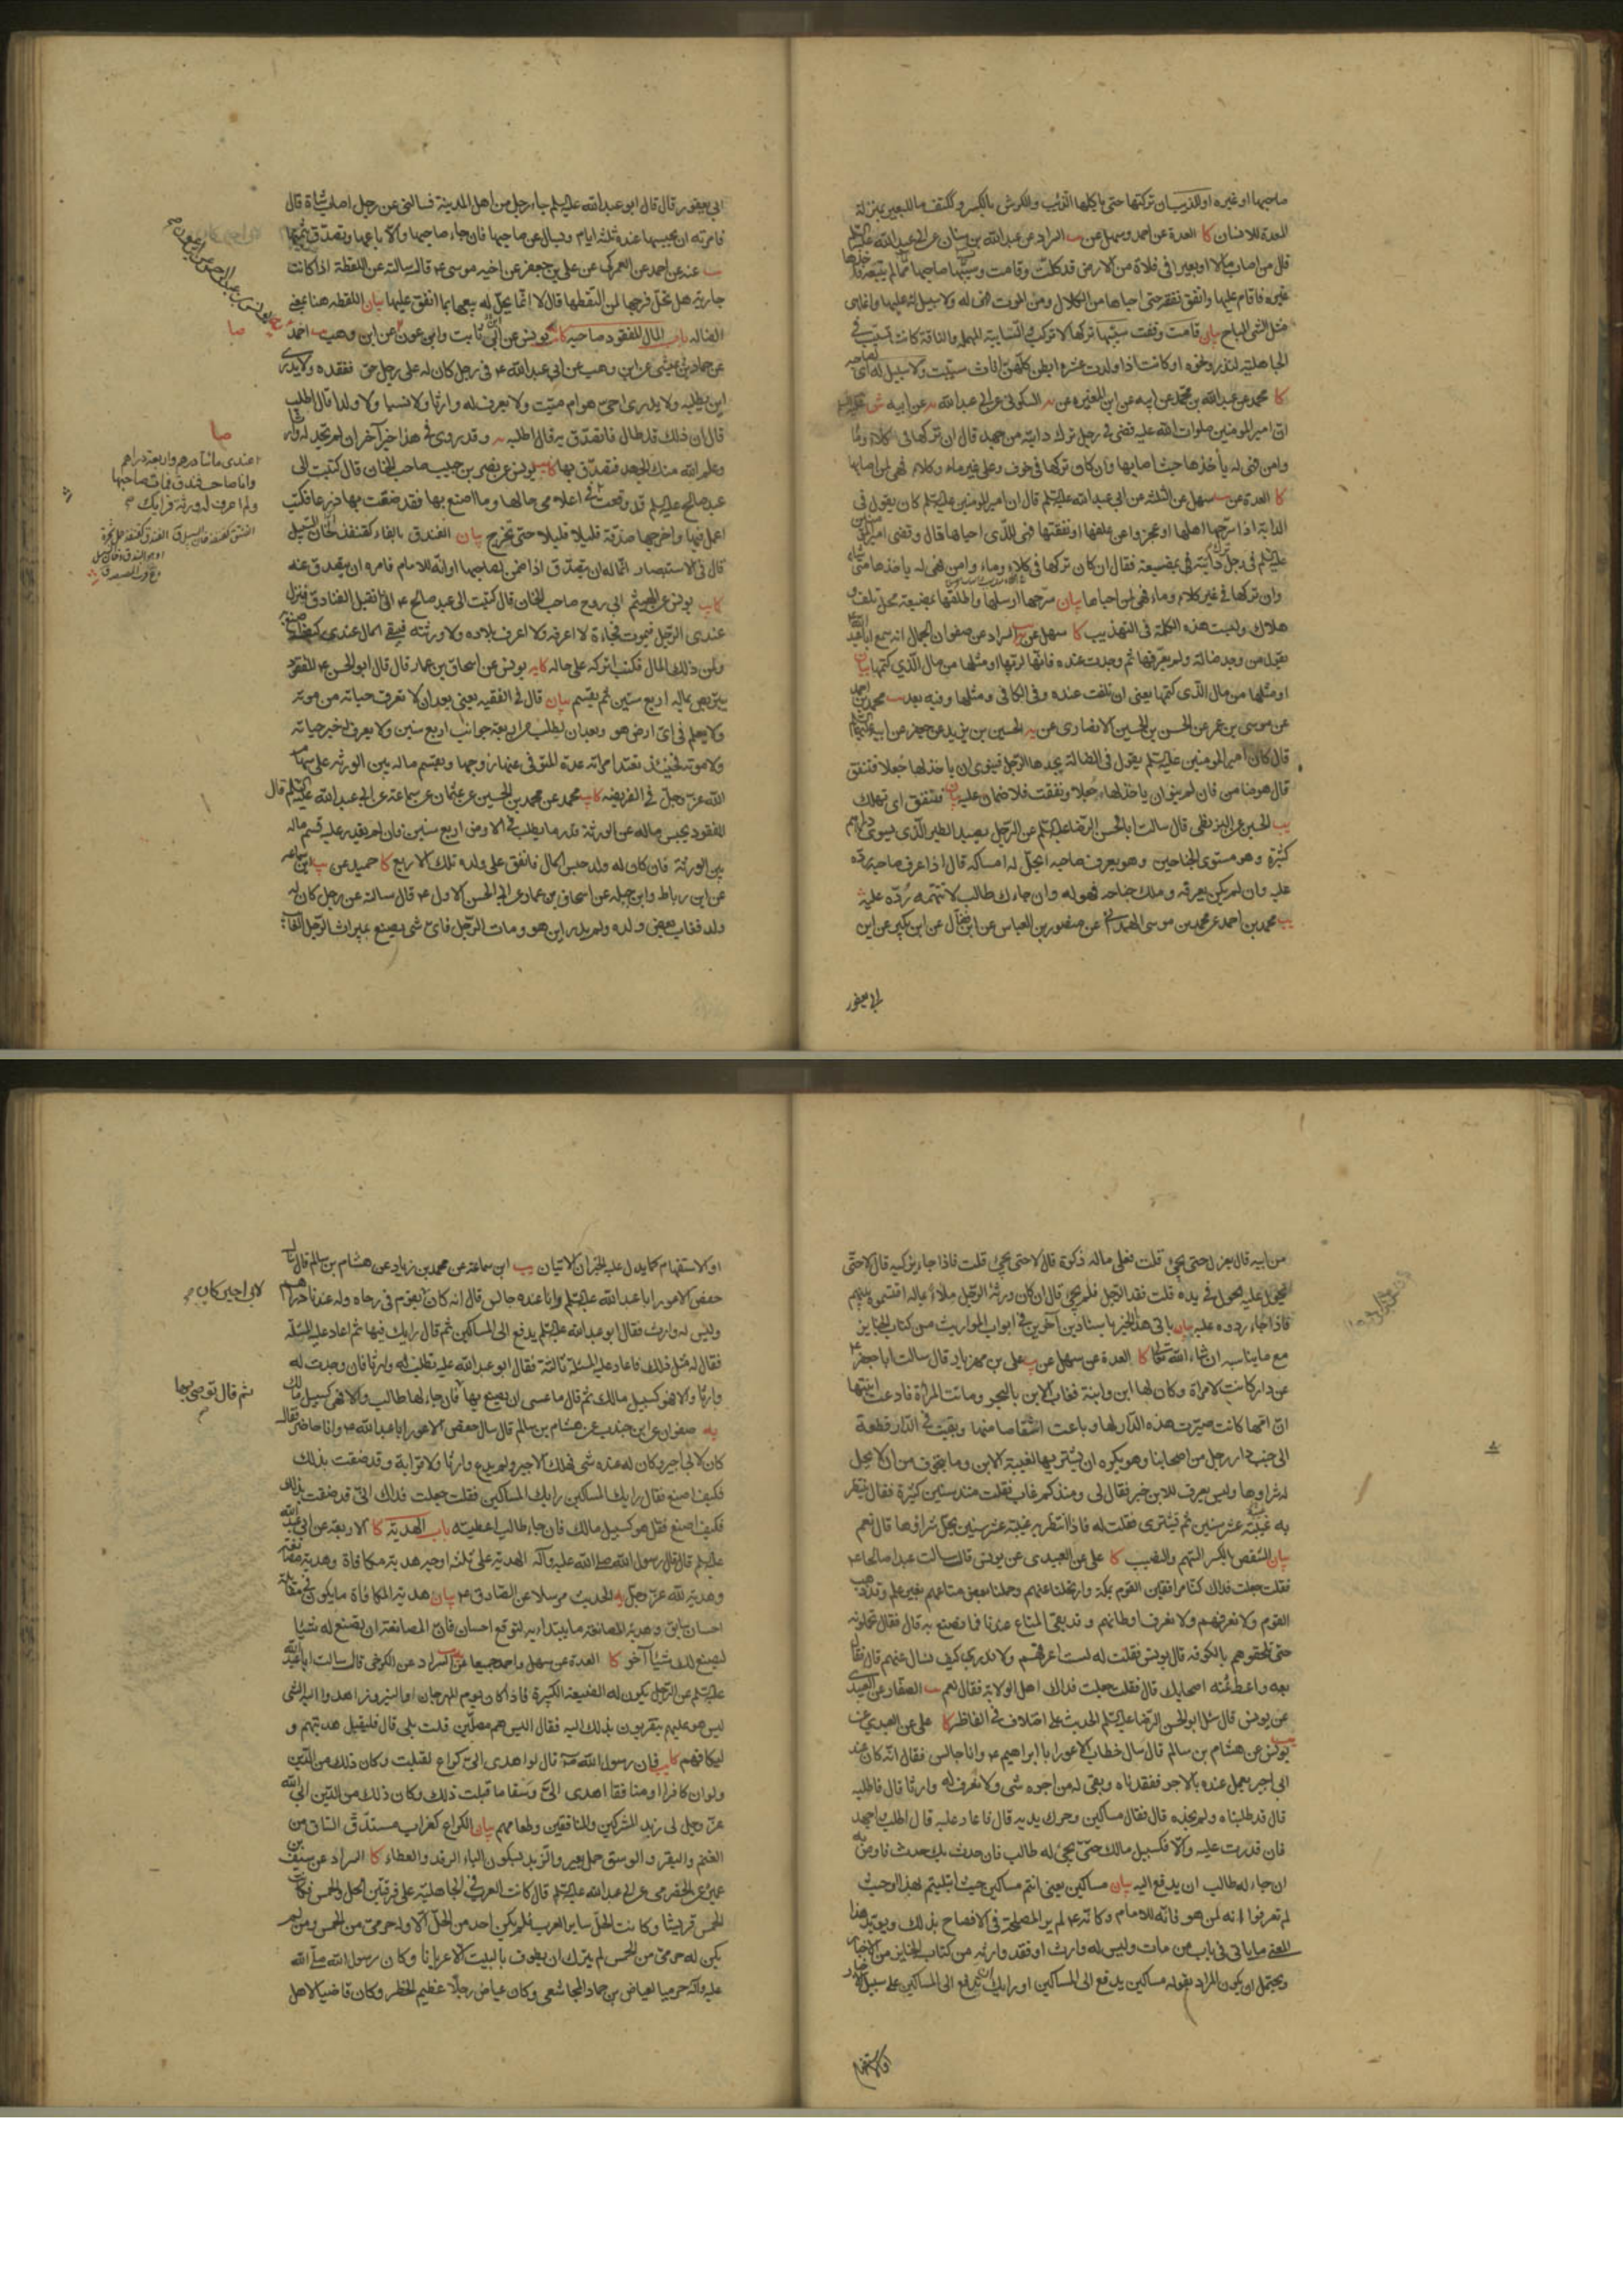 صاحبها او غيره او الذيب ان تركتها حتى ياكلها الذئب والكرش بالكسر وككتف ما للبعير بمنزلة
المعدة للانسان كا العدة عن احمد وسهل عن السراد عن عبد الله بن سنان عن ابي عبد الله عليه السلم
قال من اصاب مالا او بعيرا في فلاة من الارض قد كلت وقامت وسيبها صاحبها مما لم يتبعه فاخذها
غيره فاقام عليها وانفق نفقة حتى احياها من الكلال ومن الموت فهي له ولا سبيل له عليها وانما هي
مثل الشئ المباح بيان قامت وقفت سيبها تركها لا تركب والسايبة المهملة والناقة كانت تسيب في
الجاهلية لنذر ونحوه او كانت اذا ولدت عشرة ابطن كلهن اناث سيبت ولا سبيل له اي لصاحبه
كا محمد عن عبد الله بن محمد عن ابيه عن ابن المغيرة عن السكوني عن ابي عبد الله عن ابيه
ان امير المومنين صلوات الله عليه قضى في رجل ترك دابته من جهد قال ان تركها في كلاء وماء
وامن فهي له ياخذها حيث اصابها وان كان تركها في خوف وعلى غير ماء وكلاء فهي لمن اصابها
كا العدة عن سهل عن الثلثة عن ابي عبد الله عليه السلم قال ان امير المومنين عليه السلم كان يقول في
الدابة اذا سرحها اهلها او عجزوا عن علفها او نفقتها فهي للذي احياها قال وقضى امير المومنين
عليه السلم في رجل ترك دابته في مضيعة فقال ان كان تركها في كلاء وماء وامن فهي له ياخذها متى شاء
وان تركها في غير كلاء وماء فهي لمن احياها بيان سرحها ارسلها واطلقها بمضيعة محل تلف و
هلاك وليست هذه الكلمة في التهذيب كا سهل عن السراد عن صفوان الجمال انه سمع ابا عبد الله
يقول من وجد ضالة ولم يعرفها ثم وجدت عنده فانها لربها او مثلها من مال الذي كتمها بيان
او مثلها من مال الذي كتمها يعني ان تلفت عنده وفي الكافي ومثلها وفيه بعد محمد بن احمد
عن موسى بن عمر عن الحسن بن الحسين الانصاري عن الحسين بن يزيد عن جعفر عن ابيه عليهما السلم
قال كان امير المومنين عليه السلم يقول في الضالة يجدها الرجل فينوي ان ياخذ لها جعلا فتنفق
قال هو ضامن فان لم ينو ان ياخذ لها جعلا ونفقت فلا ضمان عليه بيان فتنفق اي تهلك
يب الحسين عن البزنطي قال سالت ابا الحسن الرضا عليه السلم عن الرجل يصيد الطير الذي يسوى دراهم
كثيرة وهو مستوى الجناحين وهو يعرف صاحبه ايحل له امساكه قال اذا عرف صاحبه رده
عليه وان لم يكن يعرفه وملك جناحه فهو له وان جاءك طالب لا تتهمه رده عليه
يب محمد بن احمد عن محمد بن موسى الهمداني عن منصور بن العباس عن ابن فضال عن ابن بكير عن ابن
ابي يعفور
ابي يعفور قال قال ابو عبد الله عليه السلم جاء رجل من اهل المدينة فسالني عن رجل اصاب شاة قال
فامرته ان يحبسها عنده ثلثة ايام ويسال عن صاحبها فان جاء صاحبها والا باعها وتصدق بثمنها
عنه عن احمد عن العمركي عن علي بن جعفر عن اخيه موسى ع قال سالته عن اللقطة اذا كانت
جارية هل يحل فرجها لمن التقطها قال لا انما يحل له بيعها بما انفق عليها بيان اللقطة هنا بمعنى
الضالة باب المال المفقود صاحبه كا يونس عن ابي ثابت وابن عون عن ابن وهب احمد
عن حماد بن عيسى عن ابن وهب عن ابي عبد الله ع في رجل كان له على رجل حق ففقده ولا يدري
اين يطلبه ولا يدري احي هو ام ميت ولا يعرف له وارثا ولا نسبا ولا ولدا قال اطلب
قال ان ذلك قد طال فاتصدق به قال اطلبه وقد روي في هذا خبر آخر ان لم تجد له وارثا
وعلم الله منك الجهد فتصدق بها كا يونس عن نصر بن حبيب صاحب الخان قال كتبت الى
عبد صالح عليه السلم قد وقعت اعلامي حالها وما اصنع بها فقد ضقت بها ذرعا فكتب
اعمل فيها واخرجها صدقة قليلا قليلا حتى تخرج بيان الفندق بالفاء كقنفذ الخان السبيل
قال في الاستبصار انما له ان يتصدق اذا ضمن لصاحبها او انه للامام فامره ان يتصدق عنه
كا يونس عن الهيثم ابي روح صاحب الخان قال كتبت الى عبد صالح ع اني اتقبل الفنادق فينزل
عندي الرجل فيموت فجاءة لا اعرفه ولا اعرف بلاده ولا ورثته فيبقى المال عندي كيف اصنع به
ولمن ذلك المال فكتب اتركه على حاله كا يه يونس عن اسحاق بن عمار قال قال ابو الحسن ع المفقود
يتربص بماله اربع سنين ثم يقسم بيان قال في الفقيه يعني بعد ان لا تعرف حياته من موته
ولا يعلم في اي ارض هو وبعد ان يطلب من اربعة جوانب اربع سنين ولا يعرف له خبر حياته
ولا موته فحينئذ تعتد امراته عدة المتوفى عنها زوجها ويقسم ماله بين الورثة على سهام
الله عز وجل في الفريضة كا محمد عن محمد بن الحسين عن عثمان عن سماعة عن ابي عبد الله عليه السلم قال
المفقود يحبس ماله عن الورثة قدر ما يطلب في الارض اربع سنين فان لم يقدر عليه قسم ماله
بين الورثة فان كان له ولد حبس المال فانفق على ولده تلك الاربع كا حميد عن ابن سماعه
عن ابن رباط وابن جبله عن اسحاق بن عمار عن ابي الحسن الاول ع قال سالته عن رجل كان له
ولد فغاب بعض ولده ولم يدر اين هو ومات الرجل فاي شئ يصنع بميراث الرجل الغائب
صا
صا
عندي مائتا درهم واربعة دراهم
وانا صاحب فندق فمات صاحبها
ولم اعرف له ورثة فرايك
من ابيه قال يعزل حتى يجئ قلت فعلى ماله زكوة قال لا حتى يجئ قلت فاذا جاء يزكيه قال لا حتى
يحول عليه الحول في يده قلت فقد الرجل فلم يجئ قال ان كان ورثة الرجل ملاء بماله اقتسموه بينهم
فاذا جاء ردوه عليه بيان ياتي هذا الخبر باسنادين آخرين في ابواب المواريث من كتاب الجنايز
مع ما يناسبه ان شاء الله تعالى كا العدة عن سهل عن علي بن مهزيار قال سالت ابا جعفر ع
عن دار كانت لامراة وكان لها ابن وابنة فغاب الابن بالبحر وماتت المراة فادعت ابنتها
ان امها كانت صيرت هذه الدار لها وباعت اشقاصا منها وبقيت في الدار قطعة
الى جنب دار رجل من اصحابنا وهو يكره ان يشتريها لغيبة الابن وما يتخوف من ان لا يحل
له شراوها وليس يعرف للابن خبر فقال لي ومنذ كم غاب فقلت منذ سنين كثيرة فقال ينتظر
به غيبته عشر سنين ثم تشترى فقلت له فاذا انتظر به غيبة عشر سنين يحل شراؤها قال نعم
بيان الشقص بالكسر السهم والنصيب كا علي عن العبيدي عن يونس قال سالت عبدا صالحا ع
فقلت جعلت فداك كنا مرافقين لقوم بمكة وارتحلنا عنهم وحملنا بعض متاعهم بغير علم وقد ذهب
القوم ولا نعرفهم ولا نعرف اوطانهم وقد بقي المتاع عندنا فما نصنع به قال فقال تحملونه
حتى تلحقوهم بالكوفه قال يونس فقلت له لست اعرفهم ولا ندري كيف نسال عنهم قال فقال
بعه واعط ثمنه اصحابك قال فقلت جعلت فداك اهل الولاية فقال نعم الصفار عن العبيدي
عن يونس قال سئل ابو الحسن الرضا عليه السلم الحديث على اختلاف في الفاظه كا علي عن العبيدي عن
يونس عن هشام بن سالم قال سال خطاب الاعور ابا ابراهيم ع وانا جالس فقال انه كان عند
ابي اجير يعمل عنده بالاجر ففقدناه وبقي له من اجره شئ ولا نعرف له وارثا قال فاطلبه
قال قد طلبناه ولم نجده قال فقال مساكين وحرك يديه قال فاعاد عليه قال اطلب واجهد
فان قدرت عليه والا فكسبيل مالك حتى يجئ له طالب فان حدث بك حدث فاوص به
ان جاء له طالب ان يدفع اليه بيان مساكين يعني انتم مساكين حيث ابتليتم بهذا او حيث
لم تعرفوا انه لمن هو فانه للامام وكانه ع لم ير المصلحة في الافصاح بذلك ويؤيد هذا
المعنى ما ياتي في باب من مات وليس له وارث او فقد وارثه من كتاب الجنايز من الاخبار
ويحتمل ان يكون المراد بقوله مساكين يدفع الى المساكين او رايك ان تدفع الى المساكين على سبيل الاخبار
او الاستفهام
او الاستفهام كما يدل عليه الخبران الاتيان يب ابن سماعة عن محمد بن زياد عن هشام بن سالم قال سال
حفص الاعور ابا عبد الله عليه السلم وانا عنده جالس قال انه كان اجير يقوم في رحاه وله عندنا دراهم
وليس له وارث فقال ابو عبد الله عليه السلم يدفع الى المساكين ثم قال رايك فيها ثم اعاد عليه المسئلة
فقال له مثل ذلك فاعاد عليه المسئلة ثالثة فقال ابو عبد الله عليه تطلب له وارثا فان وجدت له
وارثا والا فهو كسبيل مالك ثم قال ما عسى ان يصنع بها فان جاء لها طالب والا فهي كسبيل مالك
يه صفوان عن ابن جندب عن هشام بن سالم قال سال حفص الاعور ابا عبد الله ع وانا حاضر فقال
كان لابي اجير وكان له عنده شئ فهلك الاجير ولم يدع وارثا ولا قرابة وقد ضقت بذلك
فكيف اصنع فقال رايك المساكين رايك المساكين فقلت جعلت فداك اني قد ضقت بذلك
فكيف اصنع فقال هو كسبيل مالك فان جاء طالب اعطيته باب الهدية كا الاربعة عن ابي عبد الله
عليه السلم قال قال رسول الله صلى الله عليه وآله الهدية على ثلثة اوجه هدية مكافاة وهدية مصانعة
وهدية لله عز وجل يه الحديث مرسلا عن الصادق ع بيان هدية المكافاة ما يكون في مقابلة
احسان سابق وهدية المصانعة ما يبتدا به لتوقع احسان فان المصانعة ان تصنع له شيئا
ليصنع لك شيئا آخر كا العدة عن سهل واحمد جميعا عن السراد عن الكرخي قال سالت ابا عبد الله
عليه السلم عن الرجل يكون له الضيعة الكبيرة فاذا كان يوم المهرجان او النيروز اهدوا اليه الشئ
ليس هو عليهم يتقربون بذلك اليه فقال اليس هم مصلين قلت بلى قال فليقبل هديتهم و
ليكافهم كا فان رسول الله ص قال لو اهدي الي كراع لقبلت وكان ذلك من الدين
ولو ان كافرا او منافقا اهدى الي وسقا ما قبلت ذلك وكان ذلك من الدين ابى الله
عز وجل لي زبد المشركين والمنافقين وطعامهم بيان الكراع كغراب مستدق الساق من
الغنم والبقر والوسق حمل بعير والزبد بسكون الباء الرفد والعطاء كا السراد عن سيف بن
عميرة عن الحضرمي عن ابي عبد الله عليه السلم قال كانت العرب في الجاهلية على فرقتين الحل والحمس فكانت
الحمس قريشا وكانت الحل ساير العرب فلم يكن احد من الحل الا وله حرمي من الحمس ومن لم
يكن له حرمي من الحمس لم يترك ان يطوف بالبيت الا عريانا وكان رسول الله صلى الله
عليه وآله حرميا لعياض بن حماد المجاشعي وكان عياض رجلا عظيم الخطر وكان قاضيا لاهل
لابي اجير كان
ثم قال توصي بها